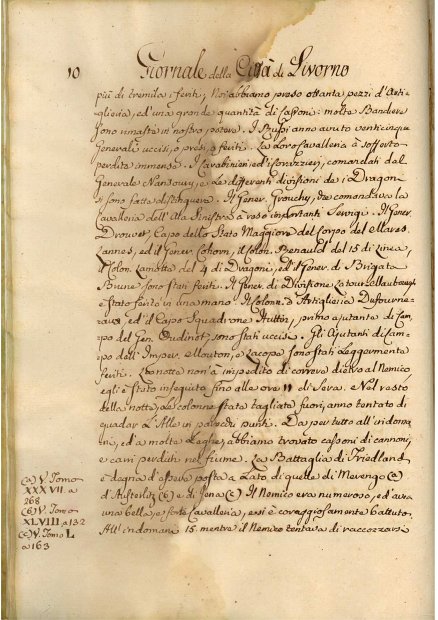 10 Giornale della Città di Livorno
più di tremila feriti; Noi abbiamo preso ottanta pezzi d'Arti-
glieria, ed una grande quantità di Cassoni: molte Bandiere
sono rimaste in nostro potere. I Russi anno avuto venticinque
Generali uccisi, o presi, o feriti. La Loro Cavalleria à sofferto
perdita immensa. I Carabinieri, ed i Corazzieri, comandati dal
Generale Nansouty, e Le differenti divisioni de i Dragoni
si sono fatte distinguere. Il Gener. Grouchy, che comandava la
Cavalleria dell'Ala Sinistra à reso importanti Servigi. Il Gener.
Drouet, Capo dello Stato Maggiore del Corpo del Mares.
Lannes, ed il Gener. Cohorn, il Colon. Renaud del 15 di Linea,
il Colon. Lamotte del 4 di Dragoni, ed il Gener. di Brigata
Brune sono stati feriti. Il Gener. di Divisione Latour Maubourg
è Stato ferito in una mano. Il Colonn. d'Artiglieria Dufourne-
ed il Capo Squadrone Huttin, primo ajutante di Cam-
po del Gen. Oudinot, sono stati uccisi. Gli Ajutanti di Cam-
po dell'Imper. Mouton, e Lacoste sono Stati Leggermente
feriti. La notte non à impedito di correre dietro al Nemico
egli è Stato inseguito fino alle ore 11 di Sera. Nel resto
della notte, Le colonne state tagliate fuori, anno tentato di
guadar L'Alle in parecchi punti. Da per tutto all'indoma-
ni, ed a molte Leghe, abbiamo trovato cassoni di cannoni,
e carri perduti nel fiume. La Battaglia di Friedland
è degna d'essere posta a Lato di quelle di Marengo (a)
d'Austerlitz (b) e di Jena (c). Il Nemico era numeroso, ed aveva
una bella, e forte Cavalleria, e si è coraggiosamente battuto.
All'indomane 15. mentre il Nemico tentava di raccozzarsi
(a) V. Tomo
XXXVII. a
268
(b) V. Tomo
XLVIII. a 132
(c) V. Tomo L
a 163